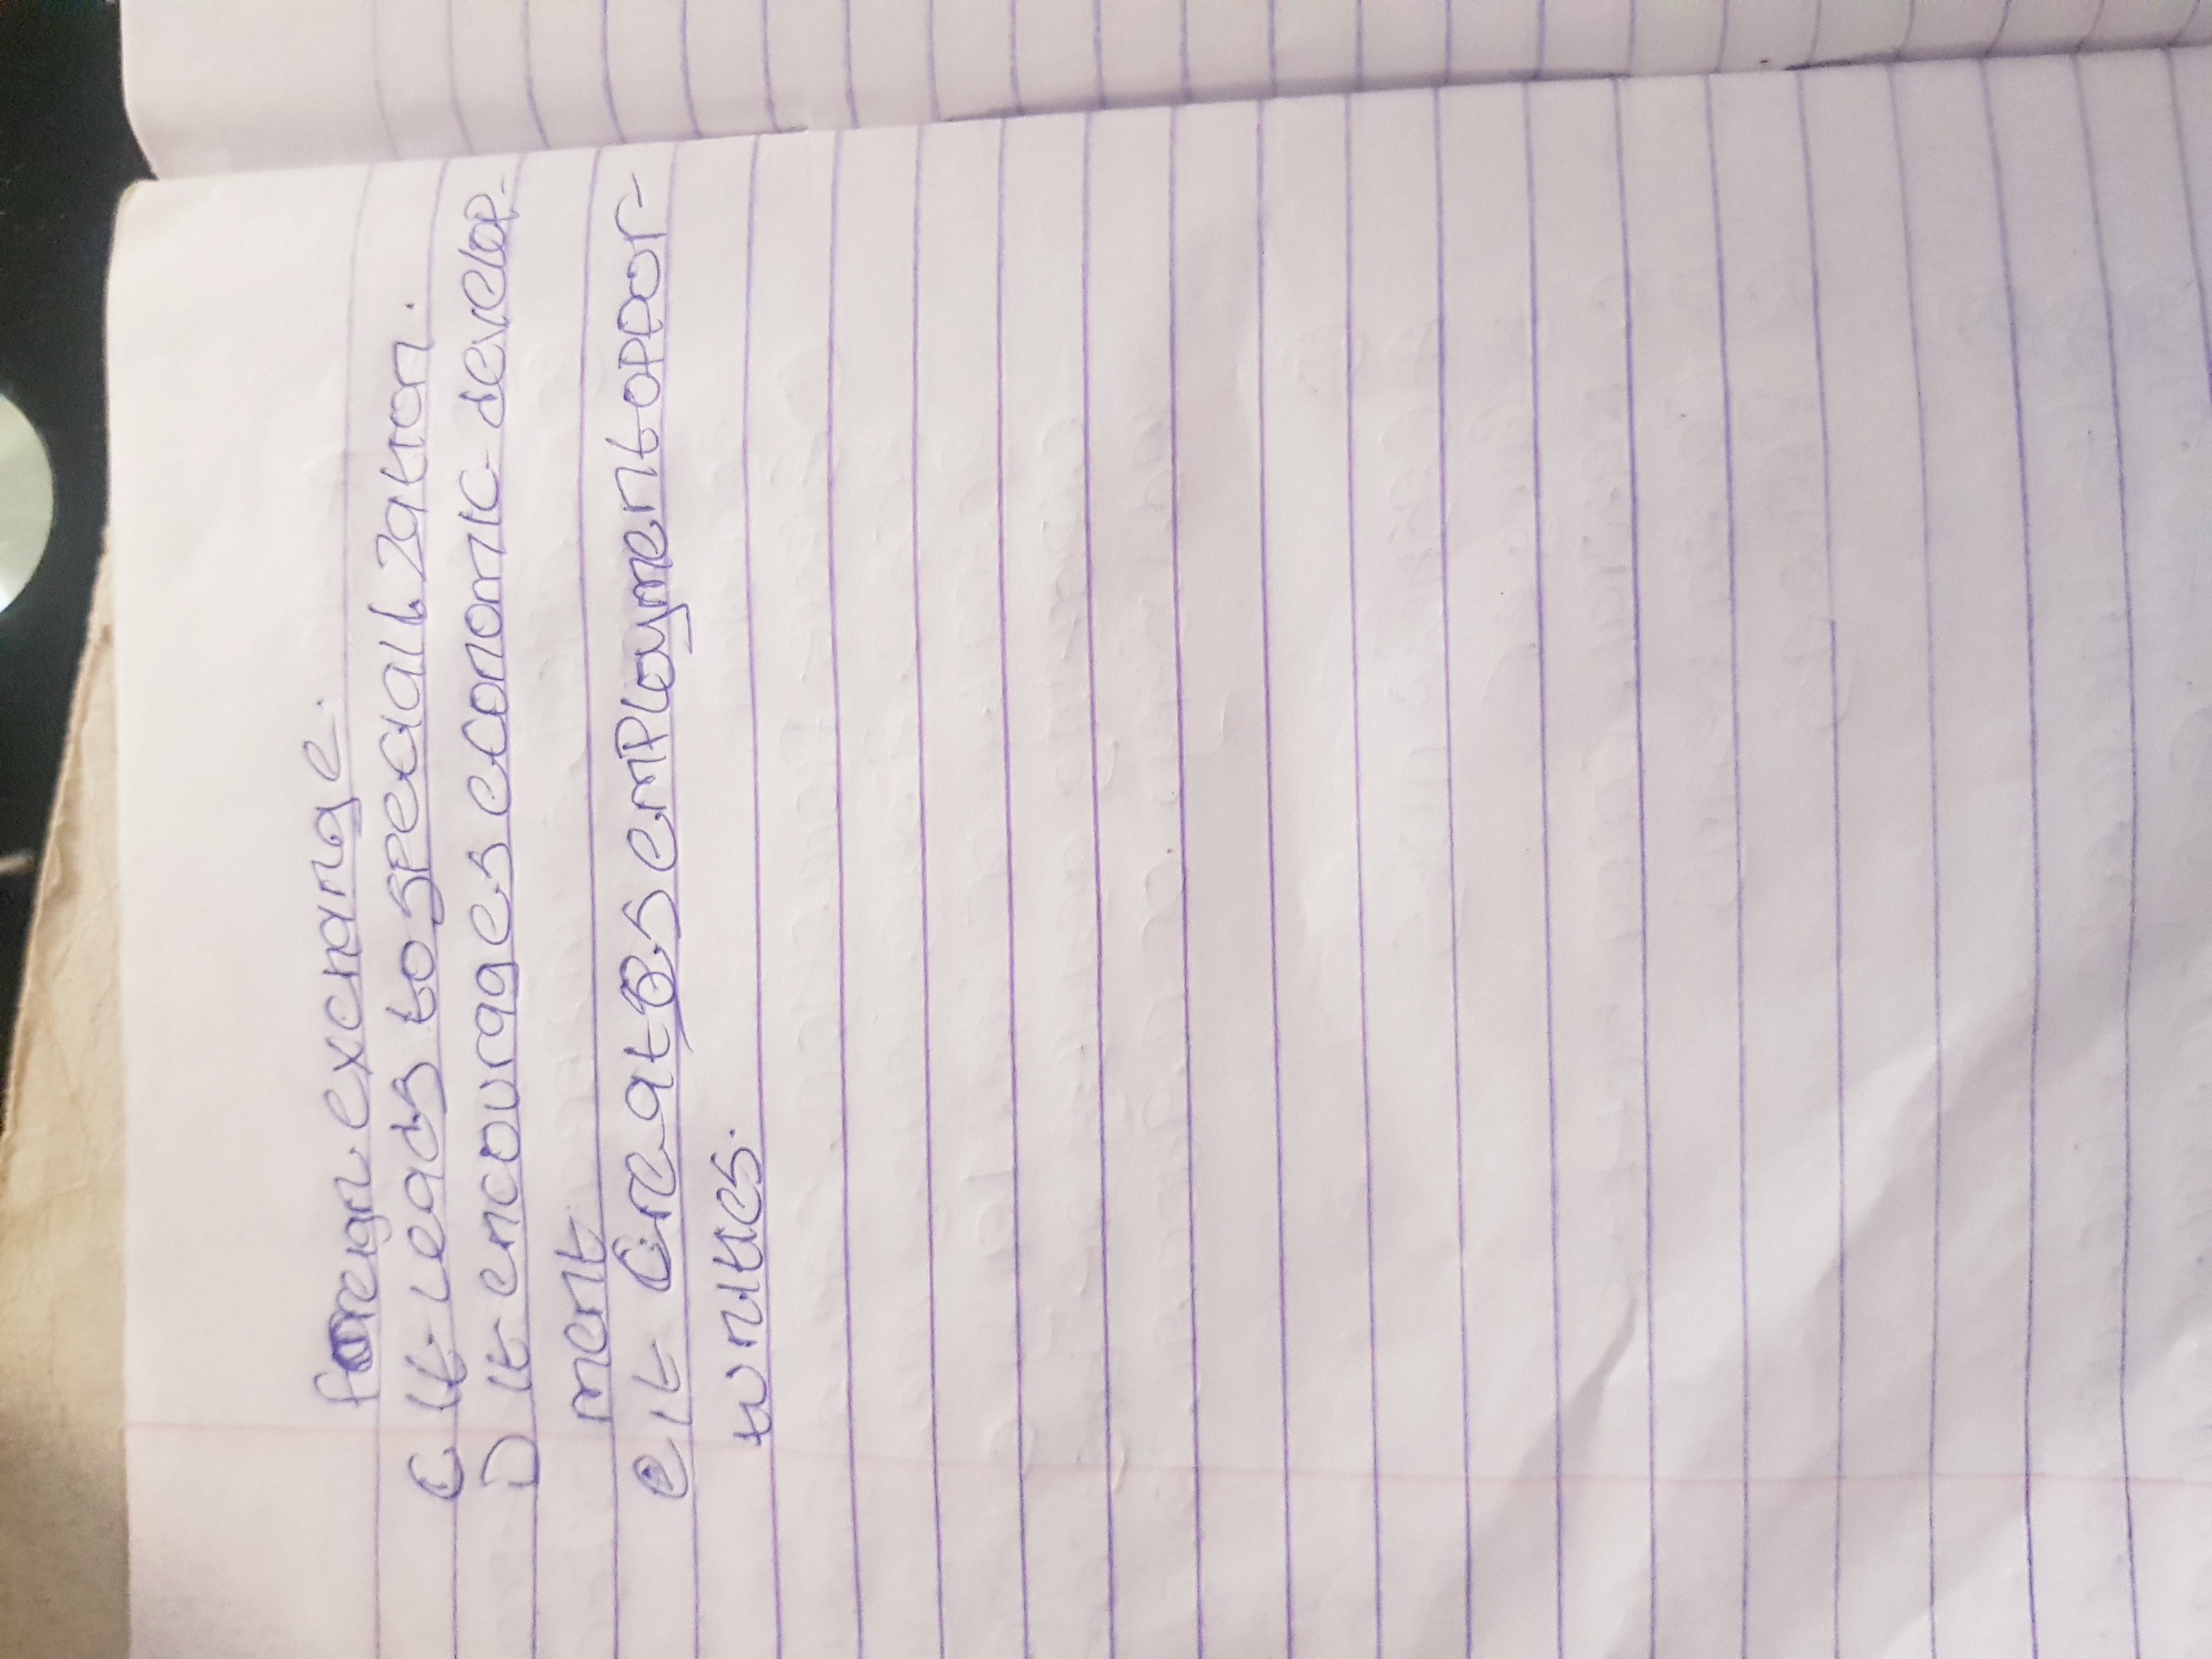 foreign exchange.
C It leads to specialization.
D It encourages economic develop-
ment
e It Creates employment oppor-
tunities.